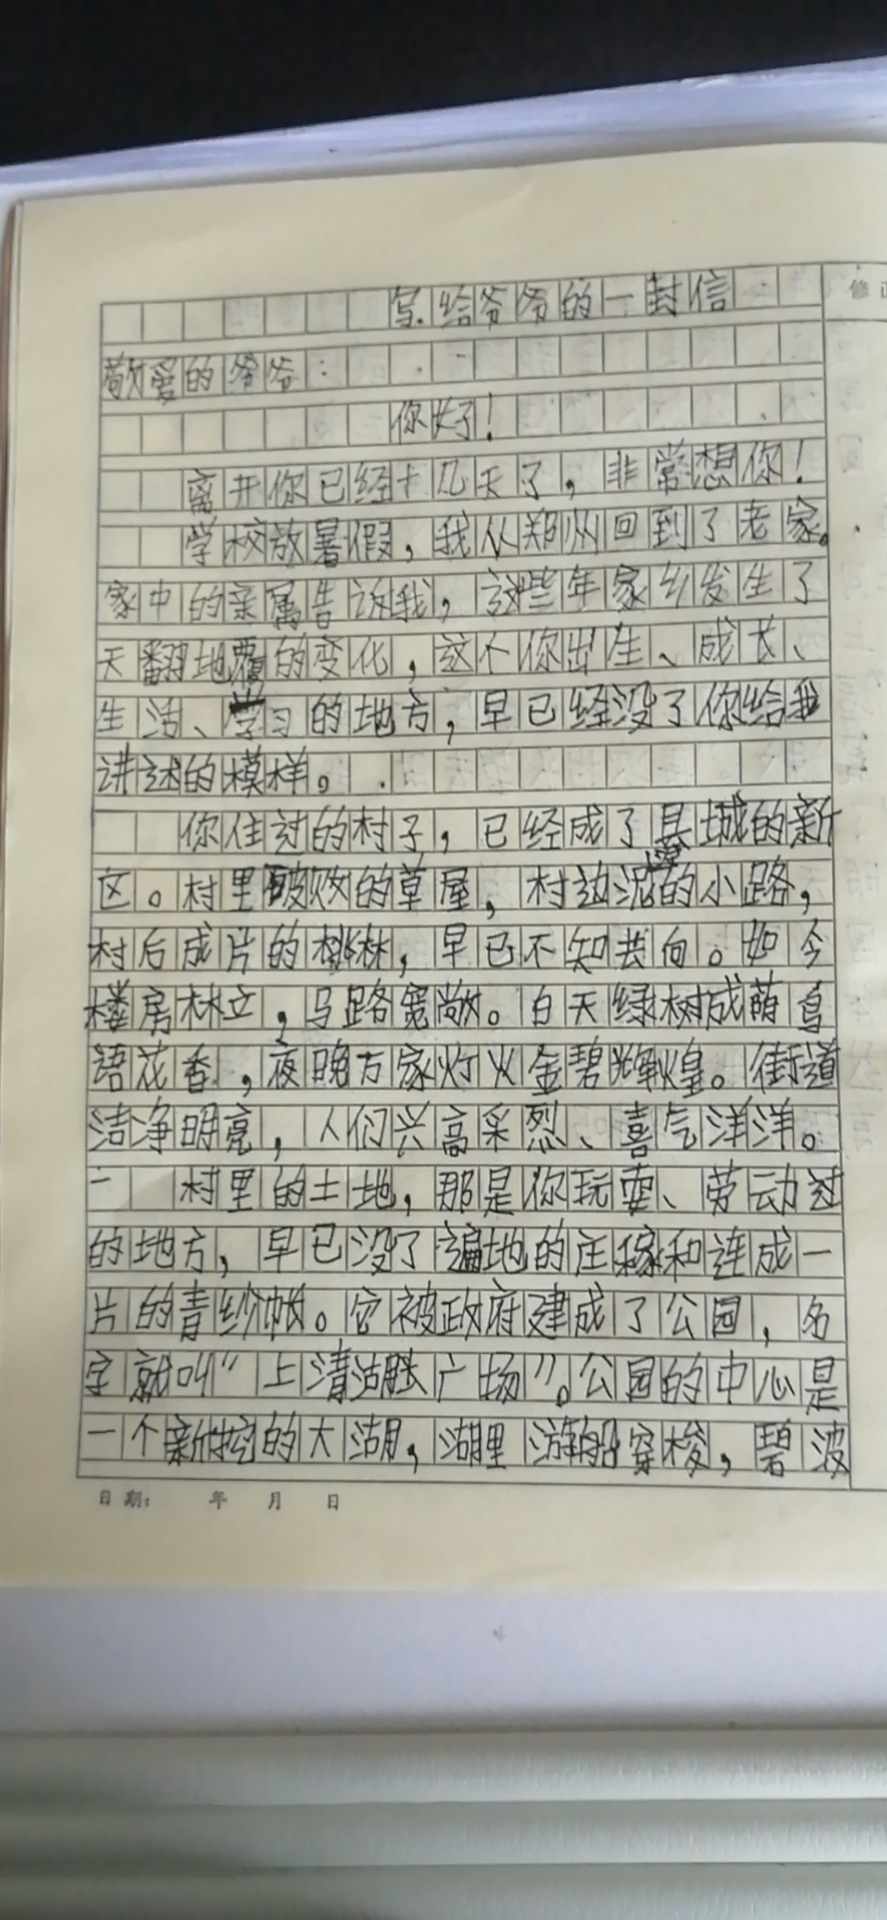 写给爷爷的一封信
敬爱的爷爷：
你好！
离开你已经十几天了，非常想你！
学校放暑假，我从郑州回到了老家。
家中的亲属告诉我，这些年家乡发生了
天翻地覆的变化，这个你出生、成长、
生活、学习的地方，早已经没了你给我
讲述的模样。
你住过的村子，已经成了县城的新
区。村里破败的草屋，村边泥泞的小路，
村后成片的桃林，早已不知去向。如今
楼房林立，马路宽敞。白天绿树成荫鸟
语花香，夜晚万家灯火金碧辉煌。街道
洁净明亮，人们兴高采烈、喜气洋洋。
村里的土地，那是你玩耍、劳动过
的地方，早已没了遍地的庄稼和连成一
片的青纱帐。它被政府建成了公园，名
字就叫“上清湖广场”。公园的中心是
一个新挖的大湖，湖里游船穿梭，碧波
日期： 年 月 日
修正